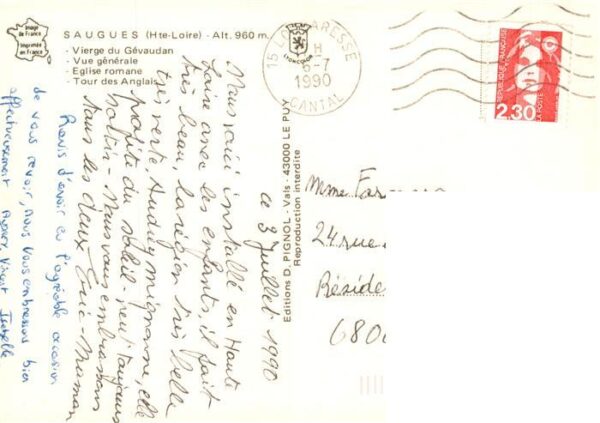 Image de France
Imprimée en France
SAUGUES (Hte-Loire) - Alt. 960 m.
- Vierge du Gévaudan
- Vue générale
- Eglise romane
- Tour des Anglais
15 LARESSE
H
6-7
1990
CANTAL
REPUBLIQUE FRANÇAISE
LA POSTE
2,30
Editions D. PIGNOL - Vals - 43000 LE PUY
Reproduction interdite
ce 3 Juillet 1990
Nous voici installé en Haute
Loire avec les enfants, il fait
très beau, la région très belle
très verte, Audrey mignonne, elle
profite du soleil - veut toujours
sortir - Nous vous embrassons
tous les deux Eric - Maman
Ravis d'avoir eu l'agréable occasion
de vous revoir, nous vous embrassons bien
affectueusement Vincent Isabelle
Mme
24 rue
Réside
680